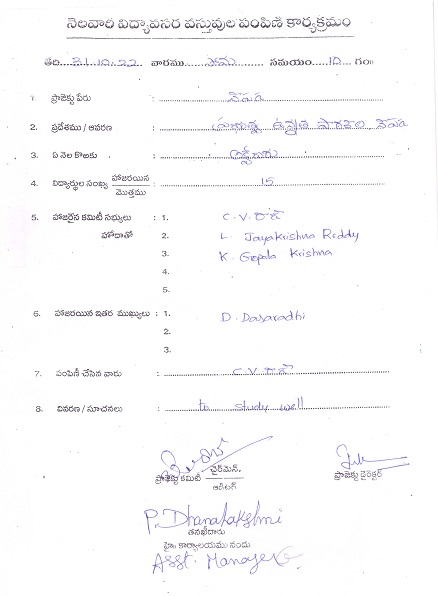 నెలవారి విద్యావసర వస్తువుల పంపిణి కార్యక్రమం
తేది 31.10.22 వారము సోమ సమయం 10 గం॥
1. ప్రాజెక్టు పేరు : వేపూ
2. ప్రదేశము / ఆవరణ : ఉన్నత పాఠశాల వేపూ
3. ఏ నెల కొఱకు : అక్టోబరు
4. విద్యార్థుల సంఖ్య హాజరయిన / మొత్తము : 15
5. హాజరైన కమిటీ సభ్యులు : 1. C.V.రావ్
హోదాతో 2. L. Jayakrishna Reddy
3. K. Gopala Krishna
4.
5.
6. హాజరయిన ఇతర ముఖ్యులు : 1. D. Dasaradhi
2.
3.
7. పంపిణీ చేసిన వారు : C.V.రావ్
8. వివరణ / సూచనలు : to study well
ప్రాజెక్టు కమిటీ చైర్‌మెన్.
ఆడిటర్
ప్రాజెక్టు డైరెక్టర్
P. Dhanalakshmi
తనిఖీదారు
హై॥ కార్యాలయము నందు
Asst. Manager